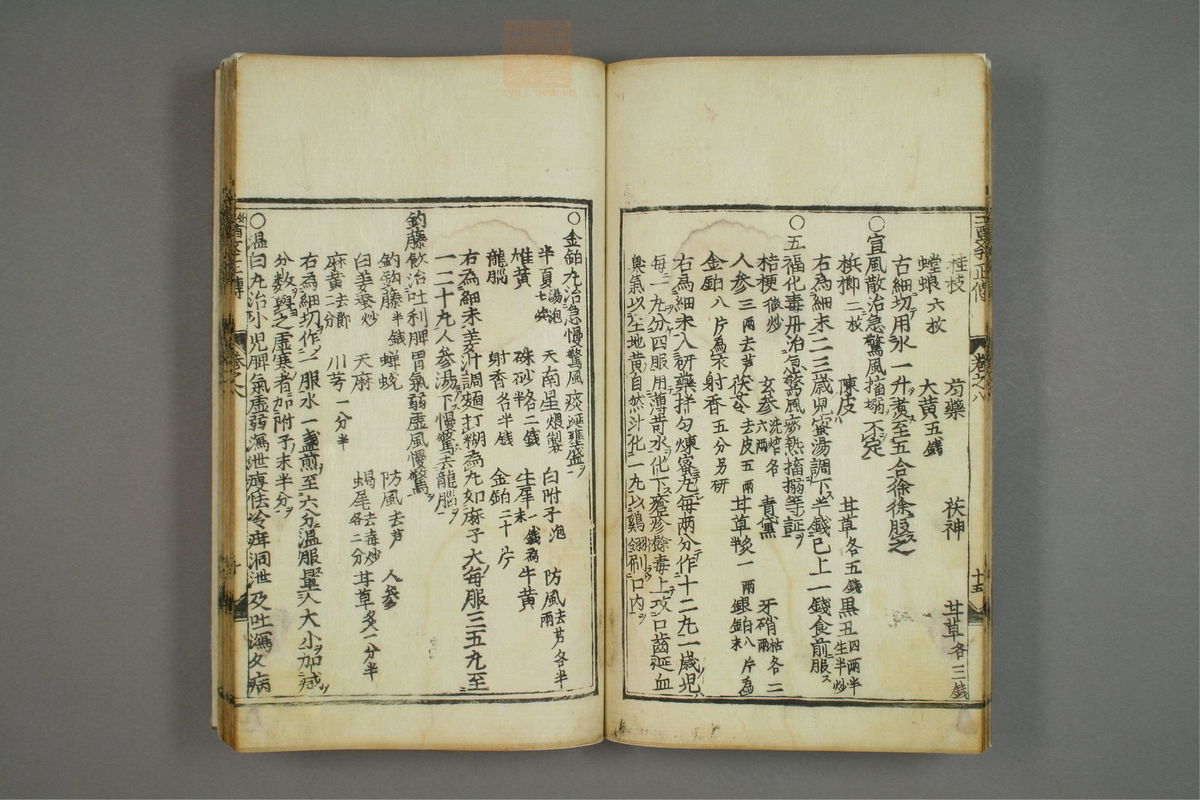 桂枝 芍藥 茯神 甘草各三錢
螳螂六枚 大黃五錢
右細切用水一升煑至五合徐徐服之
○宣風散治急驚風搐搦不定
檳榔二枚 陳皮 甘草各五錢 黑丑四兩半生半炒
右為細末二三歲兒蜜湯調下半錢已上一錢食前服
○五福化毒丹治急驚風痰熱搐搦等証
桔梗微炒 玄參洗焙各六兩 青黛 牙硝枯各二兩
人參三兩去芦 茯苓去皮五兩 甘草炙一兩 銀鉑八片為末
金鉑八片為衣 射香五分另研
右為細末入研藥拌匀煉蜜丸每兩分作十二丸一歲兒
每一丸分四服用薄苛水化下瘡疹餘毒上攻口齒涎血
臭氣以生地黃自然汁化一丸以鷄翎刷口內
卷之八
十五
○金鉑丸治急慢驚風痰涎壅盛
半夏湯泡七次 天南星煨製 白附子泡 防風去芦各半兩
雄黃 硃砂各二錢 生犀末一錢為 牛黃
龍腦 射香各半錢 金鉑二十片
右為細末姜汁調麵打糊為丸如麻子大每服三五丸至
一二十丸人參湯下慢驚去龍腦
釣藤飲治吐利脾胃氣弱虛風慢驚
釣鈎藤半錢 蟬蛻 防風去芦 人參
白姜蚕炒 天麻 蝎尾去毒炒各二分 甘草炙一分半
麻黃去節二分 川芎一分半
右為細切作一服水一盞煎至六分温服量人大小加减
分數與之虛寒者加附子末半分
○温白丸治小兒脾氣虛弱瀉泄瘦怯冷疳洞泄及吐瀉久病
卷之八